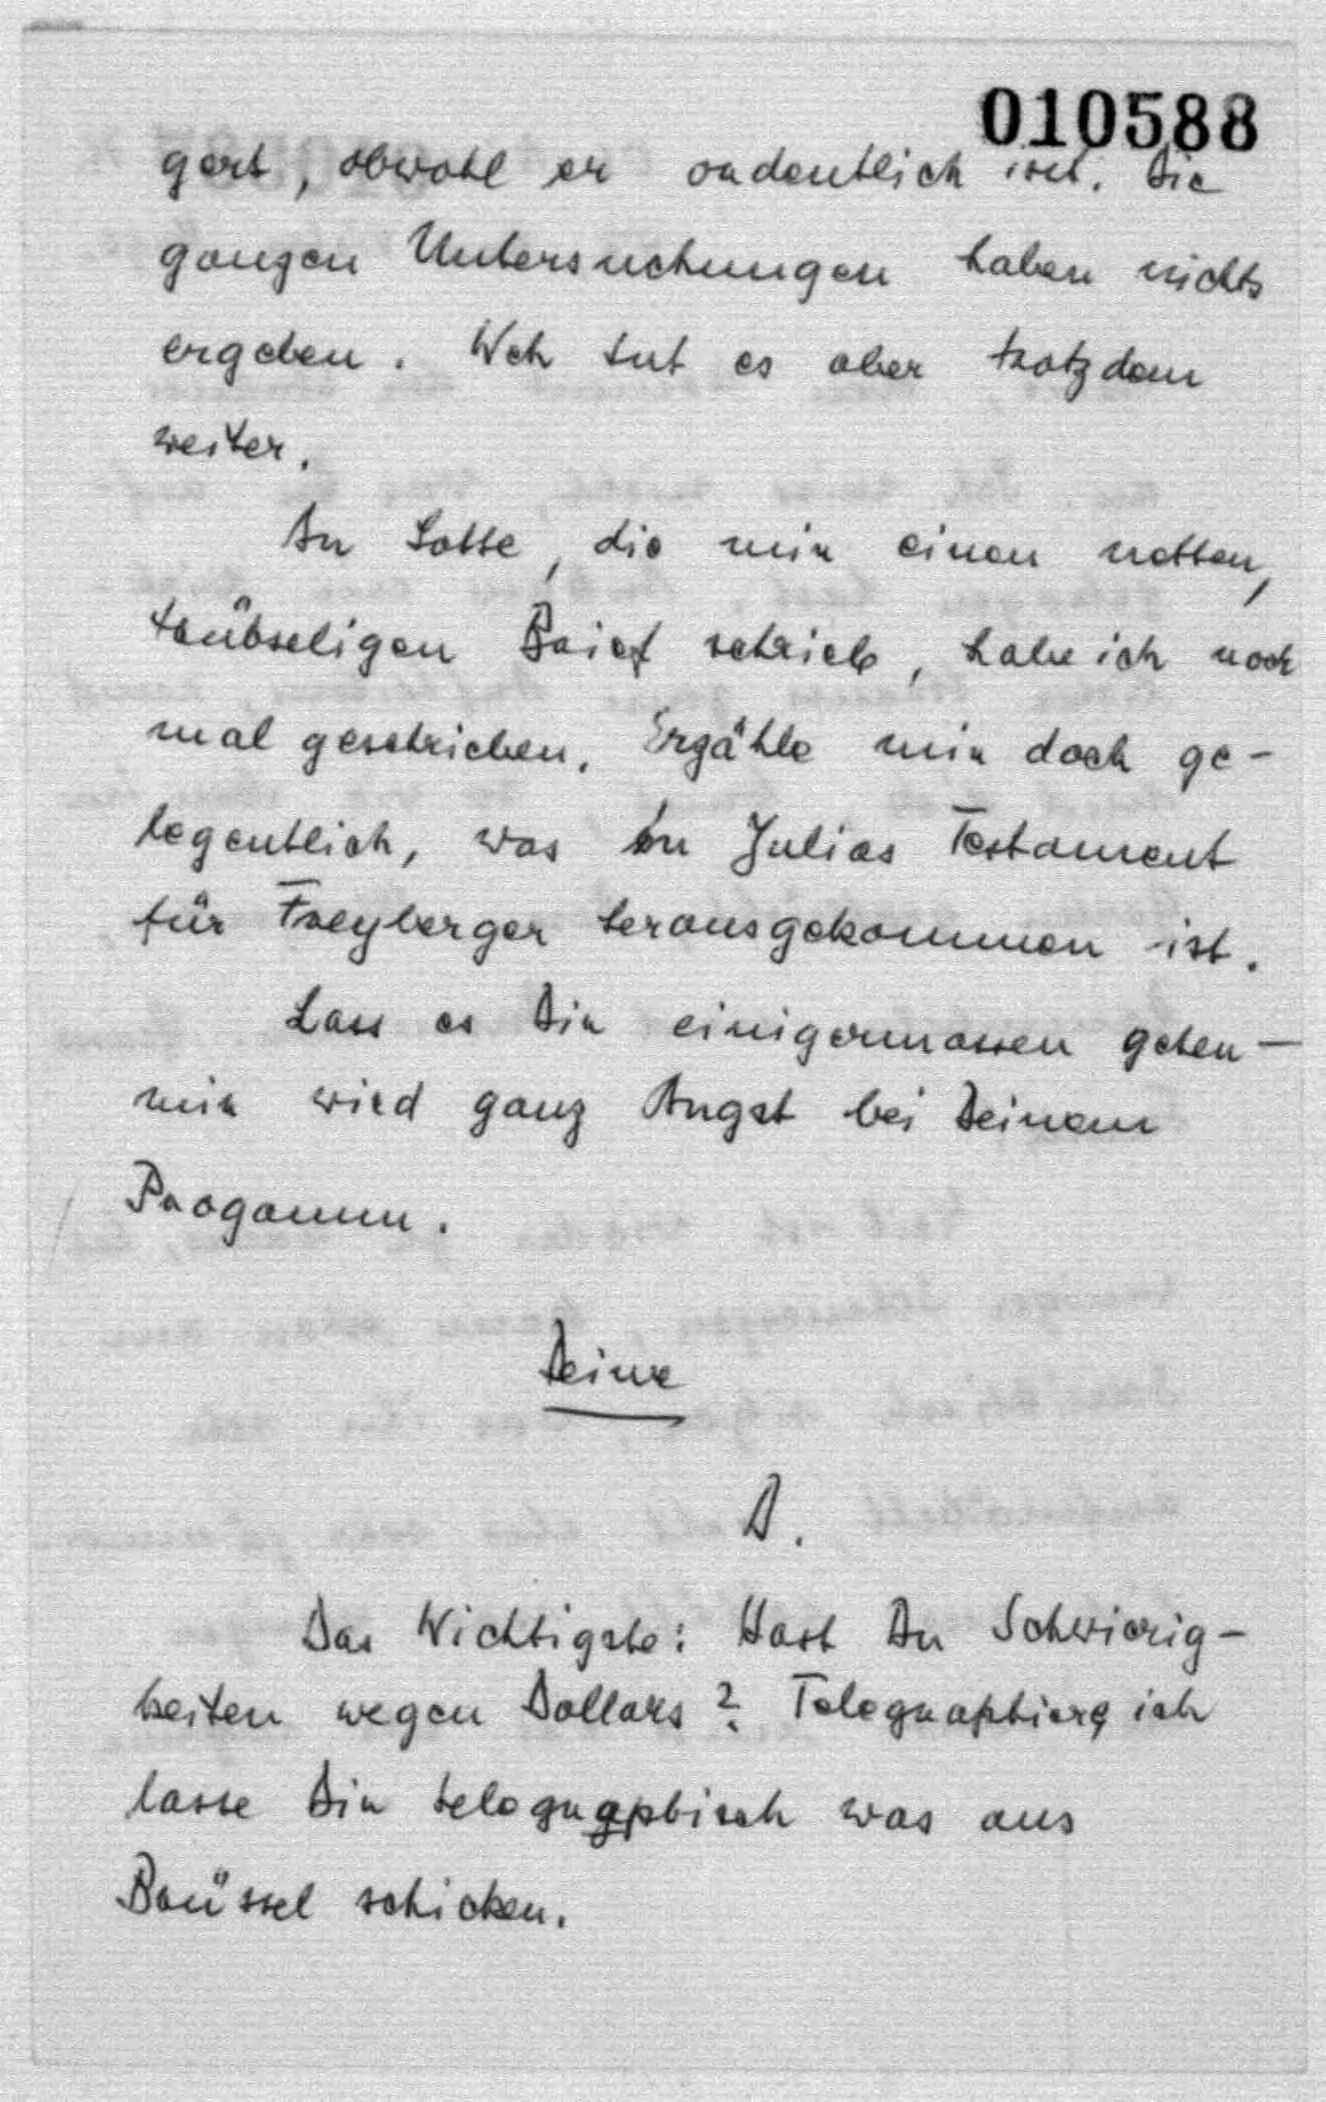 010588
gert, obwohl er ordentlich ist. Die
ganzen Untersuchungen haben nichts
ergeben. Weh tut es aber trotzdem
weiter.
An Lotte, die mir einen netten,
trübseligen Brief schrieb, habe ich noch
mal geschrieben. Erzähle mir doch ge-
legentlich, was in Julias Testament
für Freyberger herausgekommen ist.
Lass es Dir einigermassen gehen —
mir wird ganz Angst bei Deinem
Progamm.
Deine
D.
Das Wichtigste: Hast Du Schwierig-
keiten wegen Dollars? Telegraphiere ich
lasse Dir telegraphisch was aus
Brüssel schicken.